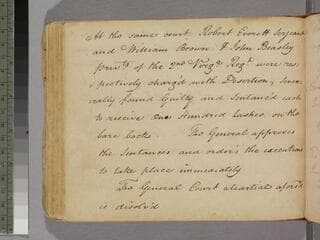 At the same court. Robert Everett Serjeant
and William Brown & John Beasley
priv.ts of the 2nd Virg.a Reg.t were res-
pectively charg'd with Desertion, seve-
rally found Guilty and Sentanc'd each
to receive One Hundred lashes on the
bare backs. The General approves
the Sentances and orders the executions
to take place immediately
The General Court Martial afors'd
is disolv'd